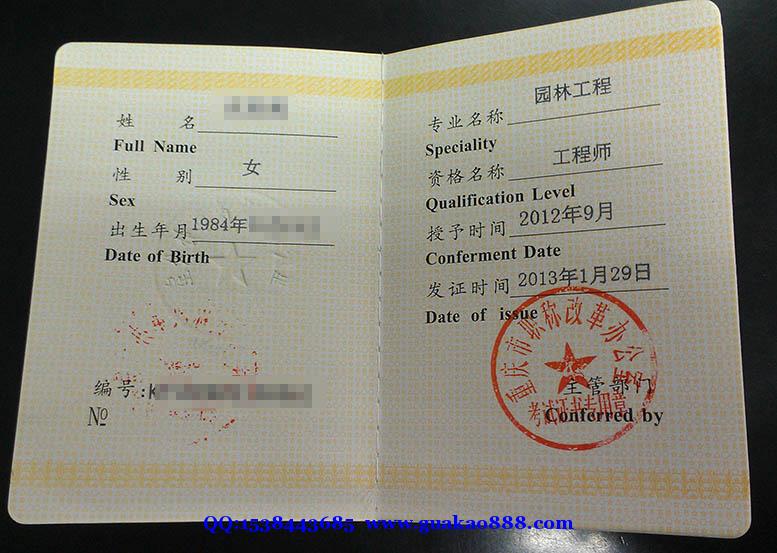 姓 名
Full Name
性 别 女
Sex
出生年月 1984年
Date of Birth
编号:K
№
专业名称 园林工程
Speciality
资格名称 工程师
Qualification Level
授予时间 2012年9月
Conferment Date
发证时间 2013年1月29日
Date of issue
重庆市职称改革办公室
考试证书专用章
主管部门
Conferred by
QQ:1538443685 www.guakao888.com